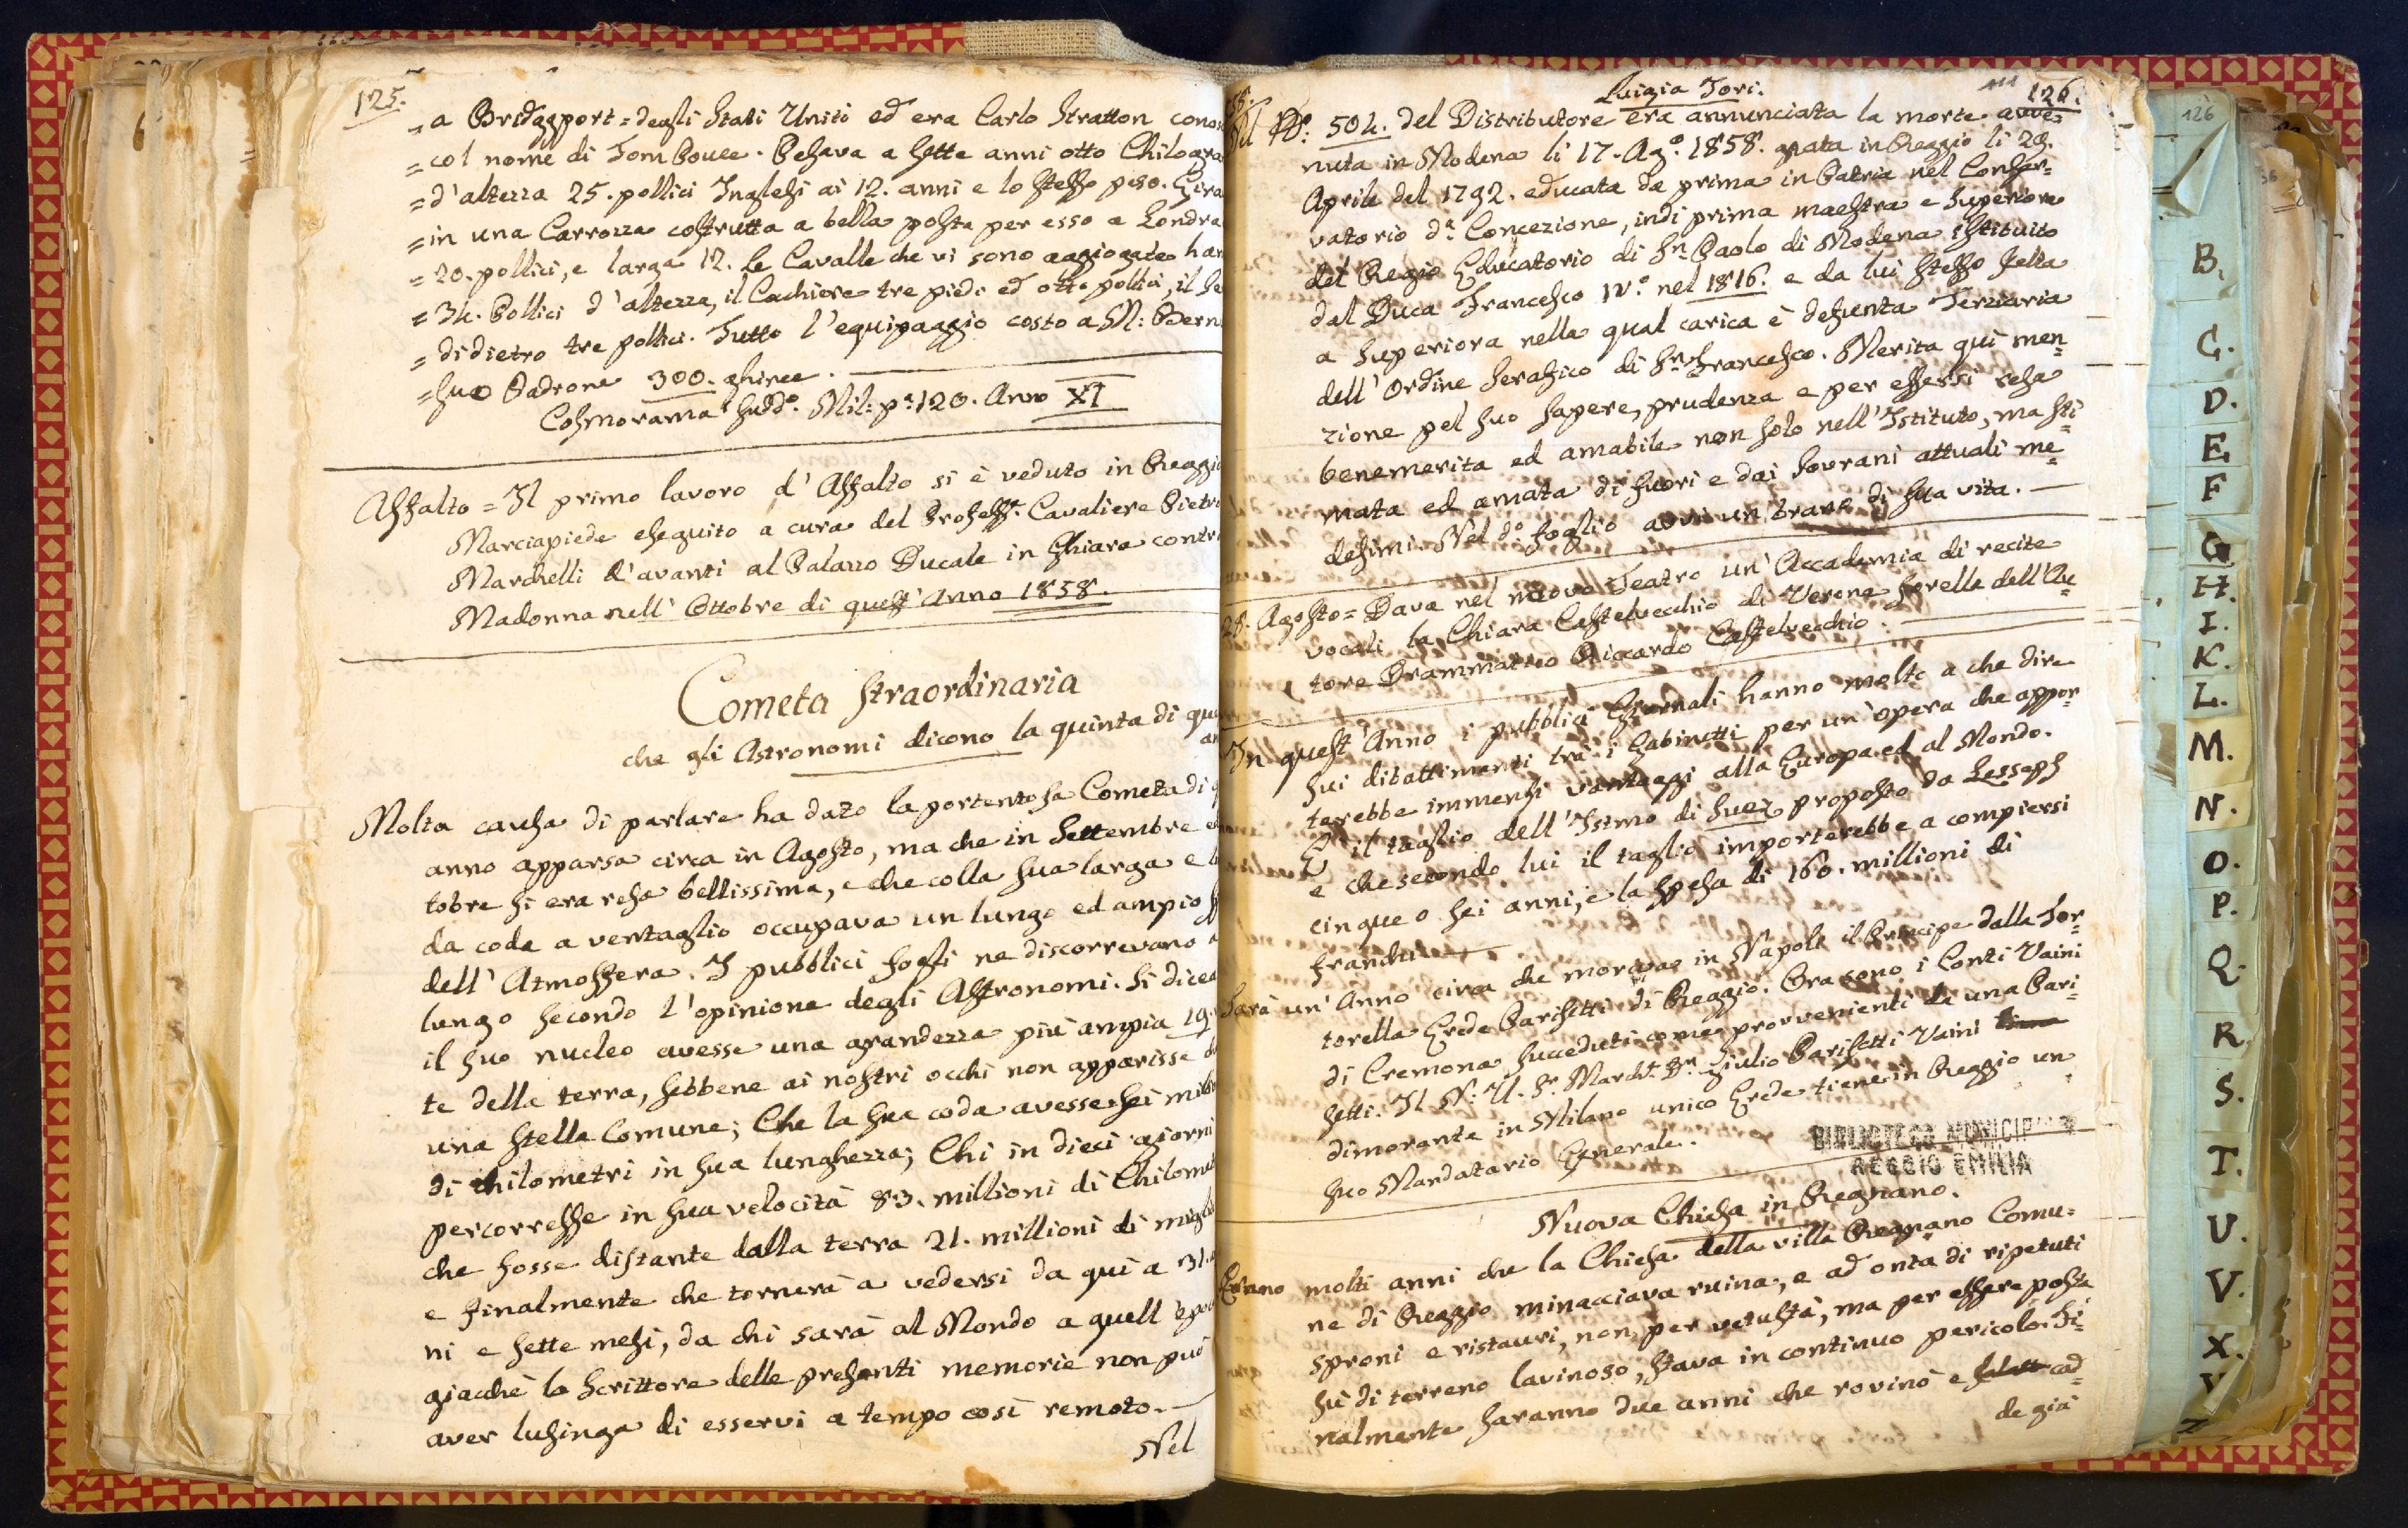 125.
= a Bridggport = degli Stati Uniti ed era Carlo Stratton
= col nome di Tom Pouce. Pesava a sette anni otto
= d'altezza 25. pollici Inglesi ai 12. anni e lo stesso peso.
= in una Carrozza costrutta a bella posta per esso a Londra
= 20. pollici, e larga 12. le Cavalle che vi sono aggiogate
= 34. Pollici d'altezza, il Cochiere tre piedi ed otto pollici, il
= di dietro tre pollici. Tutto l'equipaggio costo a M:
= suo Padrone 300. ghinee.
Cosmorama sudd.o Mil: p.a 120. Anno XI
Assalto = Il primo lavoro d'Assalto si è veduto in
Marciapiede eseguito a cura del Profess.e Cavaliere
Marchelli d'avanti al Palazzo Ducale in Ghiara
Madonna nell'Ottobre di quest'Anno 1858.
Cometa straordinaria
che gli Astronomi dicono la quinta di
Molta causa di parlare ha dato la portentosa Cometa di
anno apparsa circa in Agosto, ma che in Settembre
tobre si era resa bellissima, e che colla sua larga e
da coda a ventaglio occupava un lungo ed ampio
dell'Atmossera. I pubblici fogli ne discorrevano
lungo secondo l'opinione degli Astronomi. Si
il suo nucleo avesse una grandezza più ampia 19.
te della terra, sebbene ai nostri occhi non apparisse
una stella Comune; Che la sua coda avesse sei
di chilometri in sua lunghezza; Chi in dieci giorni
percorresse in sua velocità 83. millioni di
che fosse distante dalla terra 21. millioni di
e finalmente che tornerà a vedersi da quì a
ni e sette mesi, da chi sarà al Mondo a quell'
giacchè lo Scrittore delle presenti memorie non può
aver lusinga di esservi a tempo così remoto.
Nel
Luigia Tori.
111
126.
N.o 504. del Distributore era annunciata la morte avve=
nuta in Modena li 17. Ag.o 1858. nata in Reggio li 29.
Aprile del 1792. educata da prima in Patria nel Conser=
vatorio d.a Concezione, indi prima maestra e Superiore
del Regio Educatorio di S.n Paolo di Modena istituito
dal Duca Francesco IV.o nel 1816. e da lui stesso scelta
a Superiora nella qual carica è defunta Terziaria
dell'Ordine Serafico di S.n Francesco. Merita quì men=
zione pel suo sapere, prudenza e per essersi resa
benemerita ed amabile non solo nell'Istituto, ma sti=
mata ed amata di fuori e dai Sovrani attuali me=
desimi. Nel d.o foglio avvi un brano di sua vita.
28. Agosto = Dava nel nuovo Teatro un'Accademia di recite
vocali la Chiara Castelvecchio di Verona sorella dell'Au=
tore Drammatico Riccardo Castelvecchio.
In quest'Anno i pubblici Giornali hanno molto a che dire
sui dibattimenti trà i Gabinetti per un'opera che appor=
terebbe immensi vantaggi alla Europa ed al Mondo.
E' il taglio dell'Istmo di Suez proposto da Lesseps
e che secondo lui il taglio importerebbe a compiersi
cinque o sei anni, e la spesa di 160. millioni di
franchi
Sarà un'Anno circa che moriva in Napoli il Principe dalla Tor=
torella Erede Parisetti di Reggio. Ora sono i Conti Vaini
di Cremona succeduti come provvenienti da una Pari=
setti. Il N: U. S.r March.e D.n Giulio Parisetti Vaini
dimorante in Milano unico Erede tiene in Reggio un
suo Mandatario Generale.
BIBLIOTECA MUNICIPALE
REGGIO EMILIA
Nuova Chiesa in Regnano.
Erano molti anni che la Chiesa della villa Regnano Comu=
ne di Reggio minacciava ruina, e ad onta di ripetuti
sproni e ristauri, non per vetustà, ma per essere posta
sù di terreno lavinoso, stava in continuo pericolo. Fi=
nalmente saranno due anni che rovinò e cad=
de già
126
B.
C.
D.
E.
F
G
H.
I.
K.
L.
M.
N.
O.
P.
Q.
R.
S.
T.
U.
V.
X.
Y
Z